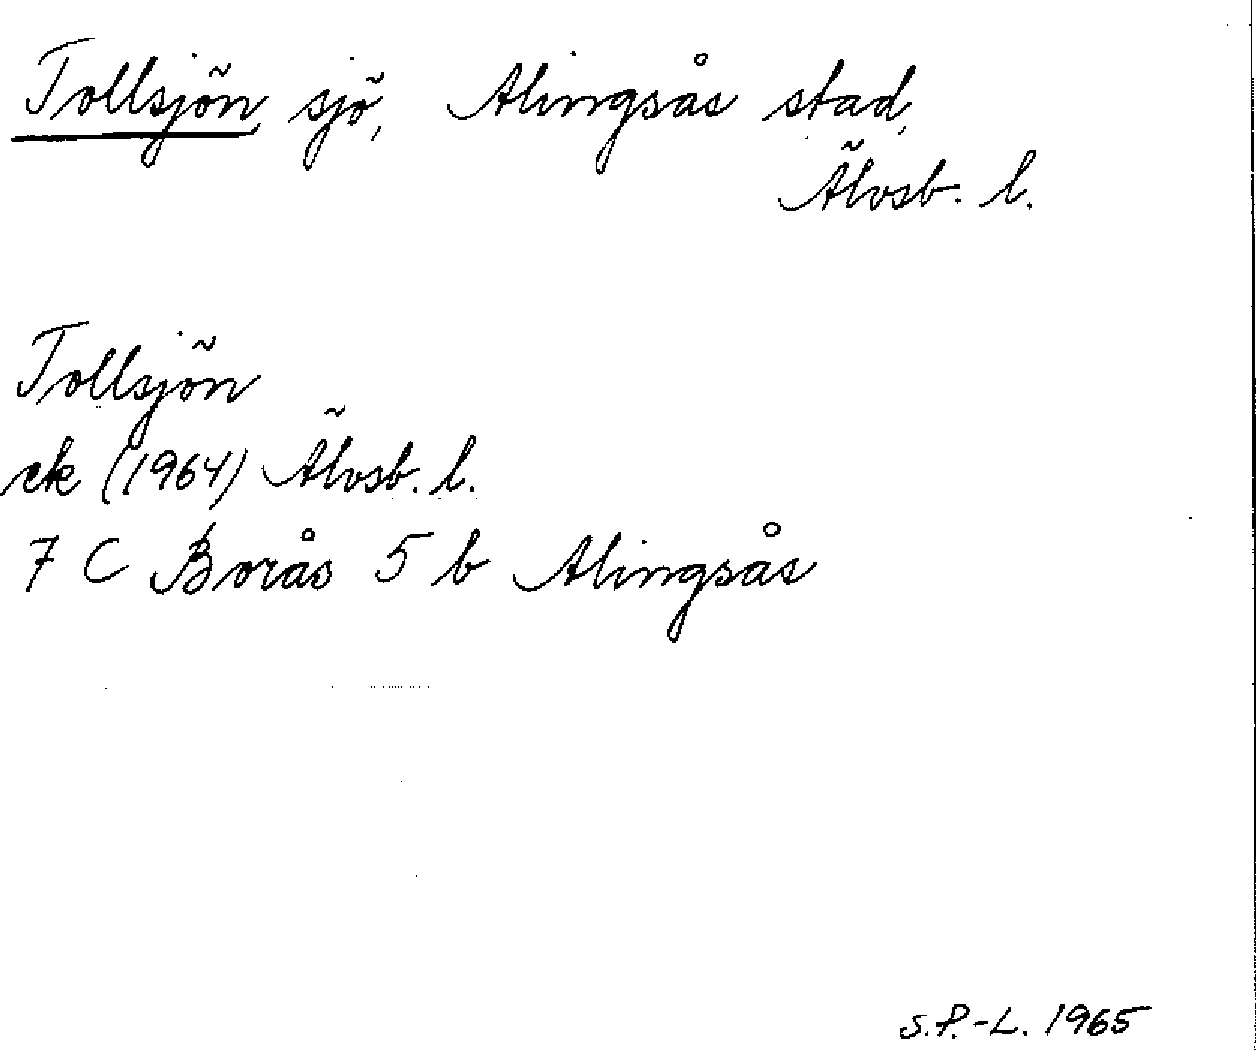 Tollsjön sjö, Alingsås stad,
Älvsb. l.
Tollsjön
ek (1964) Älvsb. l.
7 C Borås 5 b Alingsås
S.P.-L. 1965